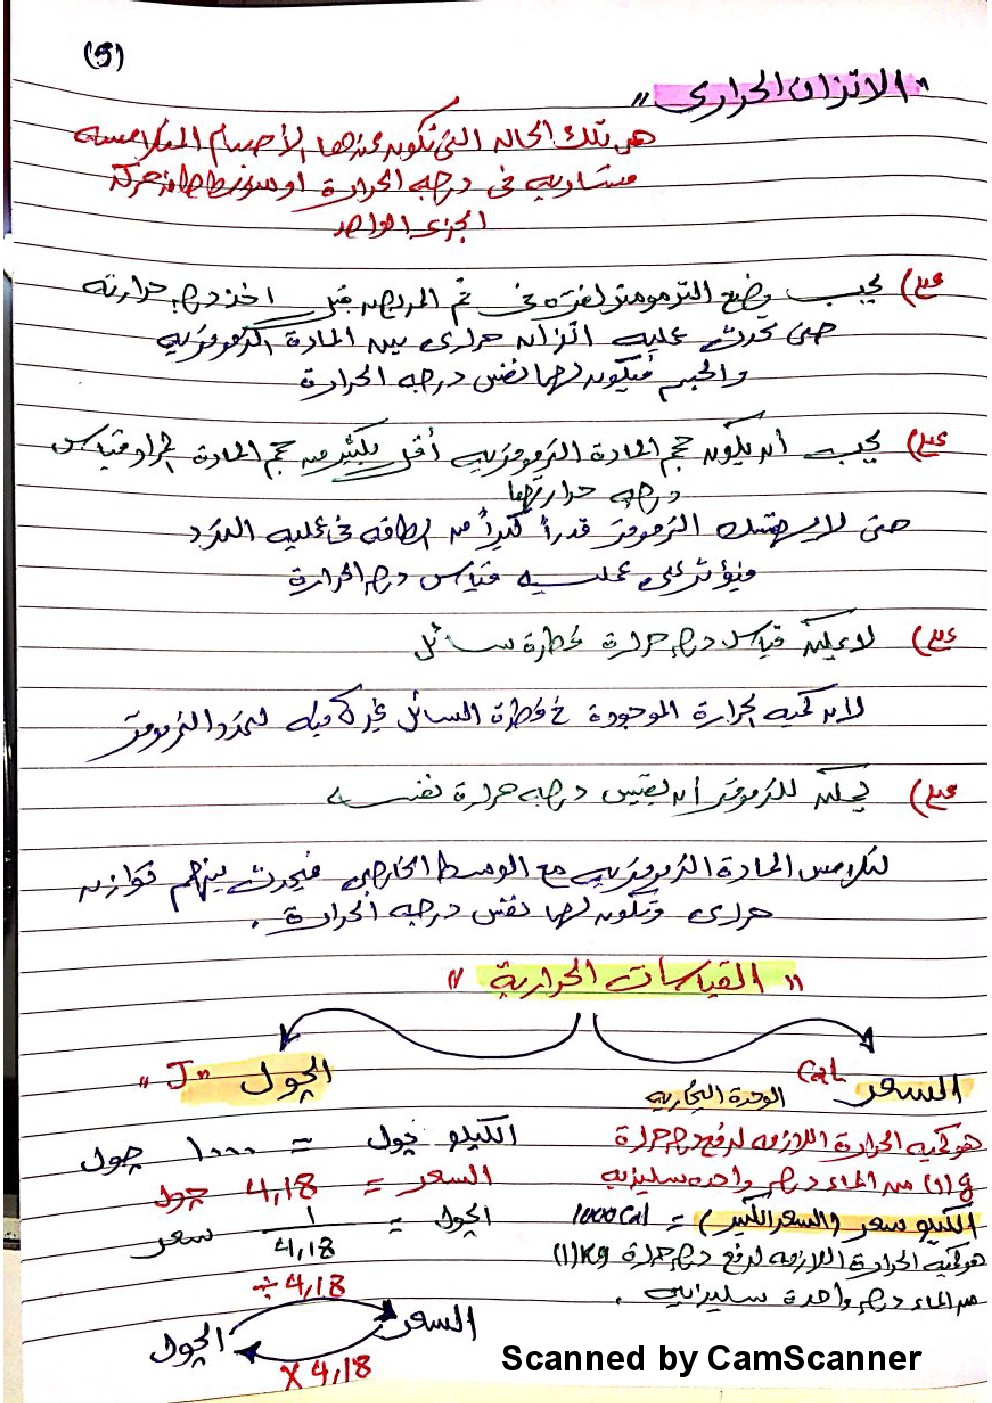 (5)
"الاتزان الحرارى"
هى تلك الحاله التى تكون عندها الأجسام المتلامسه
متساويه فى درجه الحرارة او متوسط طاقه حركة
الجزئ الواحد
علل) يجب وضع الترمومتر لفتره فى فم المريض قبل اخذ درجه حرارته
حتى يحدث عمليه اتزان حرارى بين المادة الترمومتريه
والجسم فيكون لهما نفس درجه الحرارة
علل) يجب أن يكون حجم المادة الترمومتريه أقل بكثير من حجم المادة المراد قياس
درجه حرارتها
حتى لا يستهلك الترمومتر قدراً كبيراً من الطاقه فى عمليه التمدد
فيؤثر على عمليه قياس درجه الحرارة
علل) لا يمكن قياس درجه حرارة قطرة سائل
لان كميه الحرارة الموجودة فى قطرة السائل غير كافيه لتمدد الترمومتر
علل) يمكن للترمومتر أن يقيس درجه حرارة نفسه
لتلامس المادة الترمومتريه مع الوسط الخارجى فيحدث بينهم توازن
حرارى وتكون لهما نفس درجه الحرارة.
"القياسات الحرارية"
السعر Cal
الوحدة التجاريه
هو كميه الحرارة اللازمه لرفع درجه حرارة
(1) g من الماء درجه واحده سليزيه
الكيلو سعر (السعر الكبير) = 1000 Cal
هو كميه الحرارة اللازمه لرفع درجه حرارة (1) Kg
من الماء درجه واحدة سليزيه.
الچول "J"
الكيلو چول = ١٠٠٠ چول
السعر = 4,18 چول
الچول = ١/4,18 سعر
÷ 4,18
السعر
الچول
X 4,18
Scanned by CamScanner